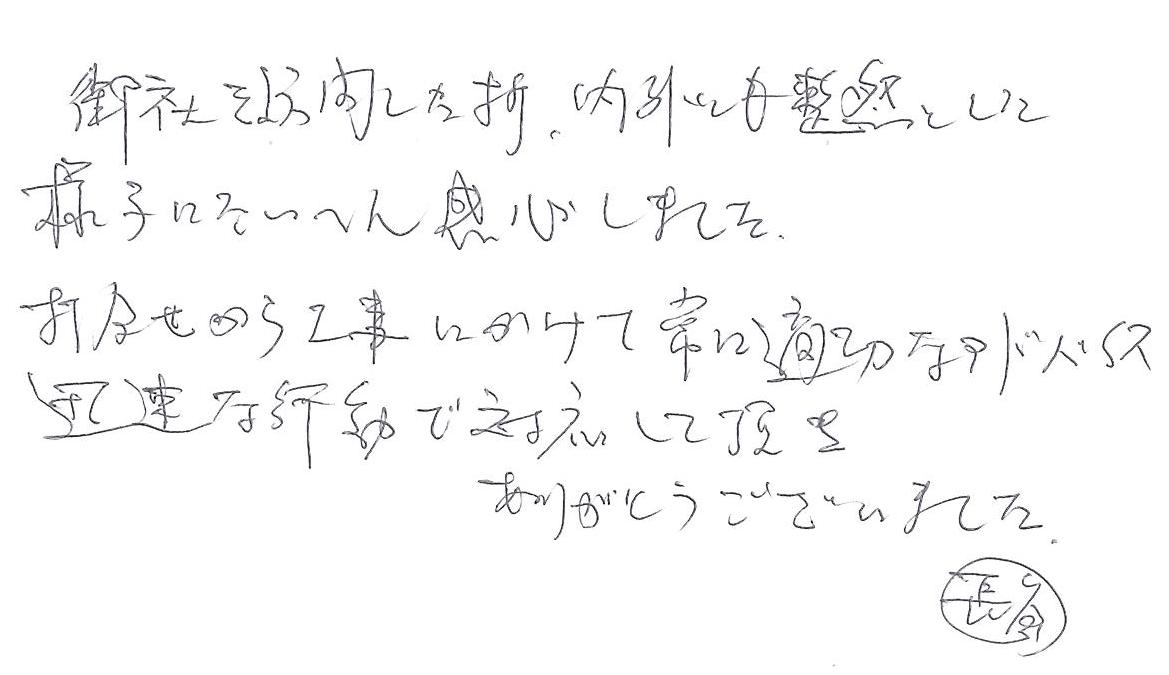 御社を訪問した折、内外とも整然とした
様子にたいへん感心しました。
打合せから工事にかけて常に適切なアドバイス
迅速な行動で対応して頂き
ありがとうございました。